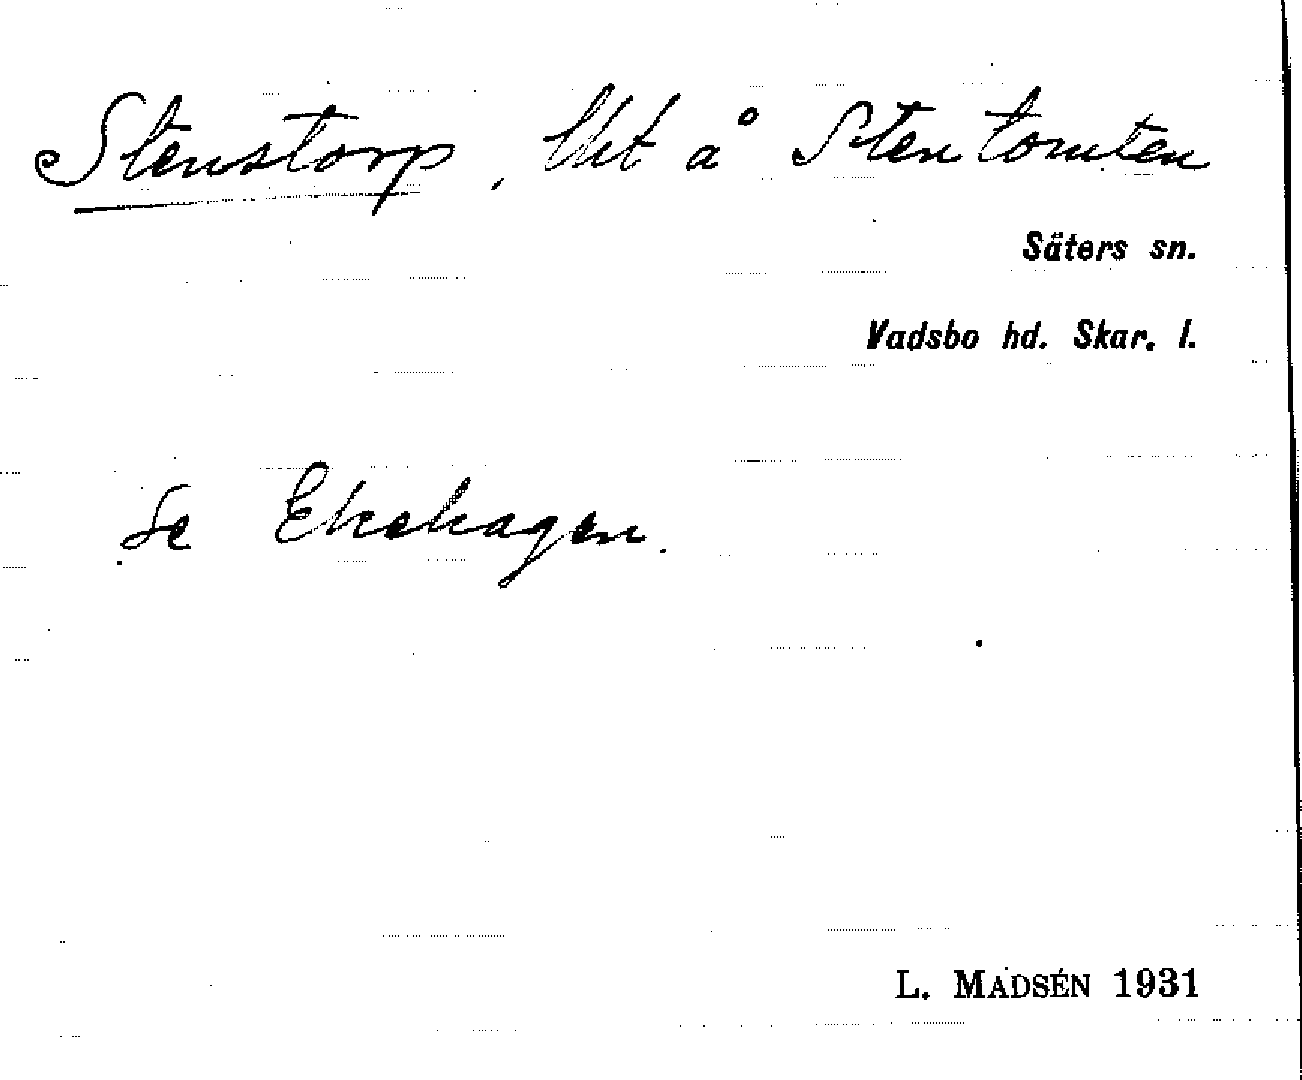 Stenstorp, lht å Stentomten
Säters sn.
Vadsbo hd. Skar. l.
Se Ekehagen.
L. MADSÉN 1931